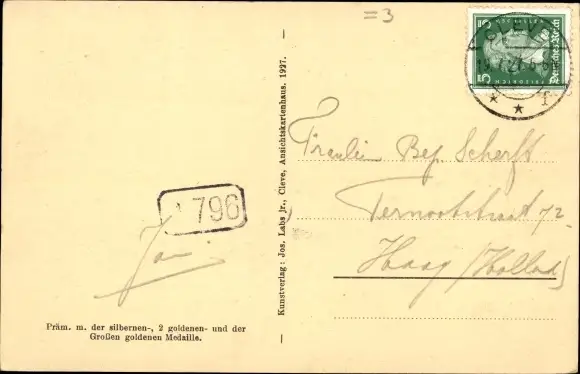 =3
5 FR. v. SCHILLER 5
Deutsches Reich
CLEVE
* * f
Fräulein Bep Scherft
Ternootstraat 72
Haag (Holland)
796
Kunstverlag: Jos. Labs jr., Cleve, Ansichtskartenhaus. 1927.
Präm. m. der silbernen-, 2 goldenen- und der
Großen goldenen Medaille.